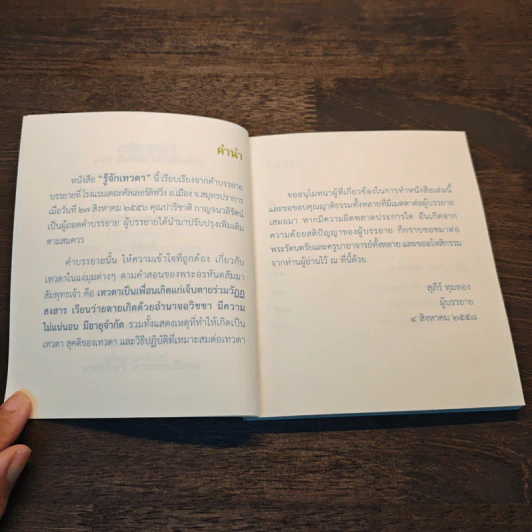 คำนำ
หนังสือ "รู้จักเทวดา" นี้ เรียบเรียงจากคำบรรยาย
บรรยายที่ โรงแรมเดอะคัลเลอร์ลิฟวิ่ง อ.เมือง จ.สมุทรปราการ
เมื่อวันที่ ๒๗ สิงหาคม ๒๕๕๖ คุณปาริชาติ กาญจนวลีรัตน์
เป็นผู้ถอดคำบรรยาย ผู้บรรยายได้นำมาปรับปรุงเพิ่มเติม
ตามสมควร
คำบรรยายนั้น ให้ความเข้าใจที่ถูกต้อง เกี่ยวกับ
เทวดาในแง่มุมต่างๆ ตามคำสอนของพระอรหันตสัมมา
สัมพุทธเจ้า คือ เทวดาเป็นเพื่อนเกิดแก่เจ็บตายร่วมวัฏฏ
สงสาร เวียนว่ายตายเกิดด้วยอำนาจอวิชชา มีความ
ไม่แน่นอน มีอายุจำกัด รวมทั้งแสดงเหตุที่ทำให้เกิดเป็น
เทวดา สุคติของเทวดา และวิธีปฏิบัติที่เหมาะสมต่อเทวดา
ขออนุโมทนาผู้ที่เกี่ยวข้องในการทำหนังสือเล่มนี้
และขอขอบคุณญาติธรรมทั้งหลายที่มีเมตตาต่อผู้บรรยาย
เสมอมา หากมีความผิดพลาดประการใด อันเกิดจาก
ความด้อยสติปัญญาของผู้บรรยาย ก็กราบขอขมาต่อ
พระรัตนตรัยและครูบาอาจารย์ทั้งหลาย และขออโหสิกรรม
จากท่านผู้อ่านไว้ ณ ที่นี้ด้วย
สุภีร์ ทุมทอง
ผู้บรรยาย
๔ สิงหาคม ๒๕๕๘